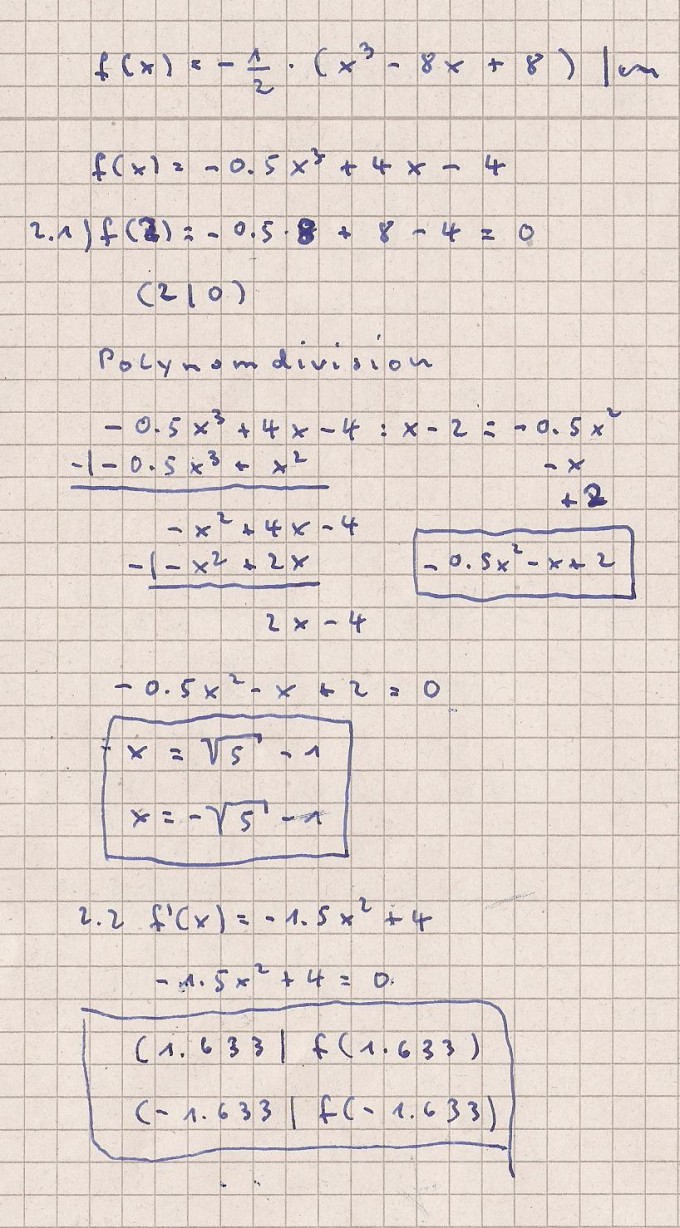 f(x) = -1/2 · (x³ - 8x + 8) |
f(x) = -0.5x³ + 4x - 4
2.1) f(2) = -0.5·8 + 8 - 4 = 0
(2|0)
Polynomdivision
-0.5x³ + 4x - 4 : x - 2 = -0.5x²
-|-0.5x³ + x² - x
+ 2
-x² + 4x - 4
-|-x² + 2x -0.5x² - x + 2
2x - 4
-0.5x² - x + 2 = 0
x = √5 - 1
x = -√5 - 1
2.2 f'(x) = -1.5x² + 4
-1.5x² + 4 = 0
(1.633 | f(1.633)
(-1.633 | f(-1.633)